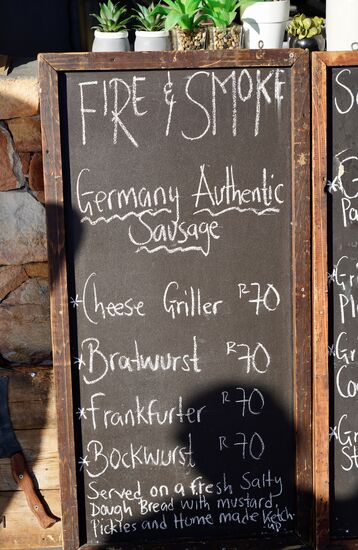 FIRE & SMOKE
Germany Authentic
Sausage
* Cheese Griller R70
* Bratwurst R70
* Frankfurter R70
* Bockwurst R70
Served on a fresh Salty
Dough Bread with mustard,
Pickles and Home made Ketch-
up